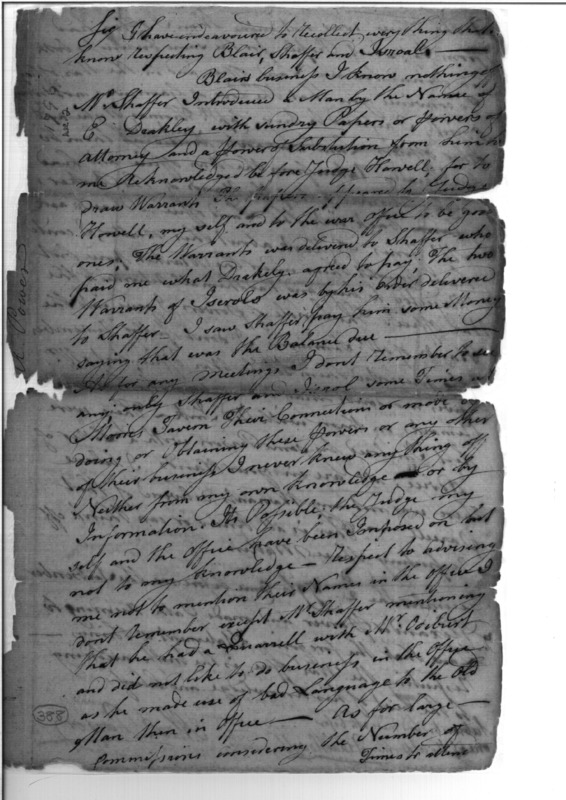 Sir I have endeavoured to Recollect every thing that I
know Respecting Blair, Shaffer and Isroal.
Blairs business I know nothing of
Mr Shaffer Introduced a Man by the Name of
E Deakley with Sundry Papers or Powers of
Attorney and a Power Substution from him to
me Acknowledged before Judge Howell, for to
draw Warrants The papers appeared to Judge
Howell, my self and to the war office to be good
ones, The Warrants was delivered to Shaffer who
paid me what Drakely agreed to pay, The two
Warrants of Iserols was by his Order delivered
to Shaffer I saw Shaffer pay him some Money
saying that was the Balance due
As for any meetings I dont Remember to see
any only Shaffer and Isrol some Times
Morres Tavern Their Connections or mode of
doing or Obtaining these Powers or any other
of their business I never knew any thing off
Neither from my own Knowledge or by
Information, Its Possible the Judge my
self and the Office have been Imposed on but
not to my knowledge Respect to advising
me not to mention their Names in the Office I
dont Remember except Mr Shaffer mentioning
that he had a Quarrell with Mr.
and did not like to do business in the Office
as he made use of bad Language to the Old
Man then in Office As for large
Commissions considering the Number of
Times to attend
a Power
388